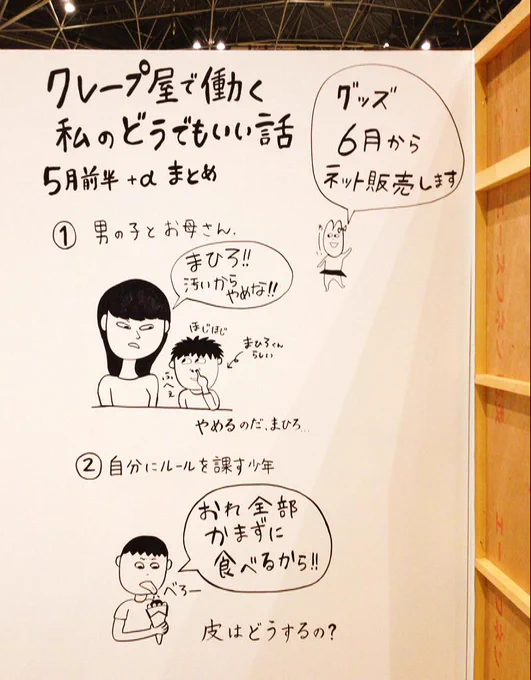 クレープ屋で働く
私のどうでもいい話
5月前半+α まとめ
グッズ
6月から
ネット販売します
① 男の子とお母さん.
まひろ!!
汚いから
やめな!!
ほじほじ
まひろくん
らしい
ふへぇ
やめるのだ、まひろ...
② 自分にルールを課す少年
おれ全部
かまずに
食べるから!!
べろー
皮はどうするの?